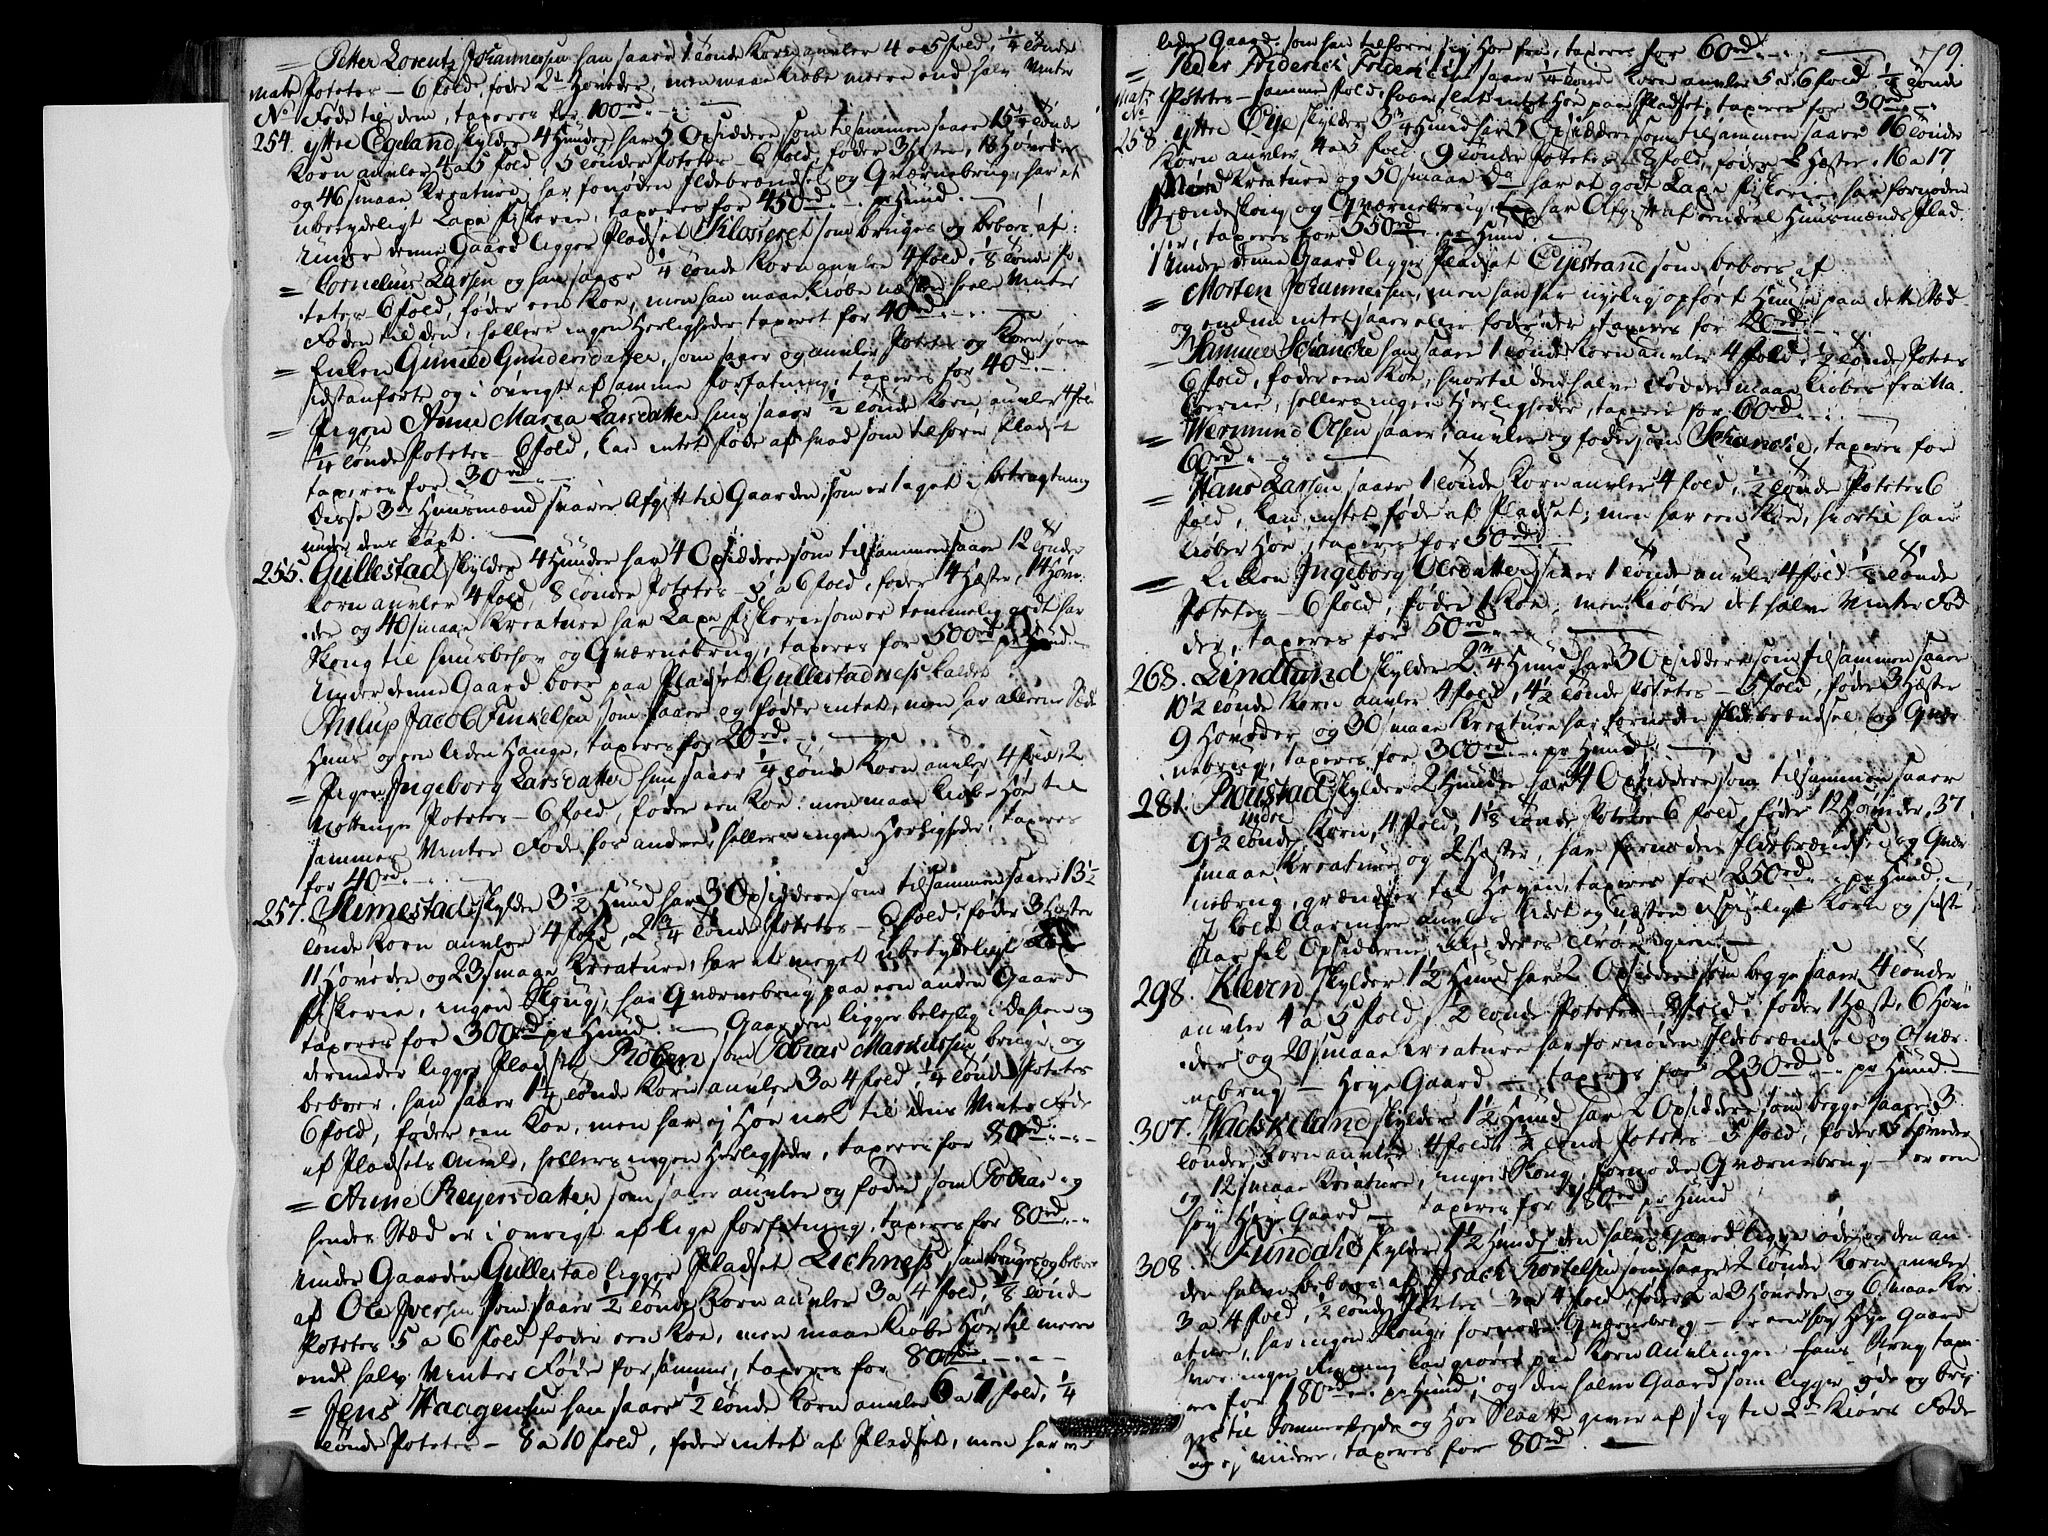 = Petter Lorentz Johannesen han saaer 1 tønde Korn auvler 4 a 5 fold, 1/4 tønde
Potetes – 6 fold, føder 2de Høveder, men maae kiøbe meere end halv Vinter
Matr Føde til dem, taxeres for 100rd
No
254. Yttre Egeland skylder 4 Hunder har 5 Opsiddere som tilsammen saaer 15 1/2 tønde
Korn auvler 4 a 5 fold, 5 tønder Potetes – 6 fold, føder 3 Hæster, 18 Høveder
og 46 smaae Kreature, har fornøden Ildebrændsel og Qværnebrug, har et
ubetydeligt Laxe fiskerie, taxeres for 450rd pr Hund. –
Under denne Gaard ligger Pladset Klosteret som bruges og beboes af:
= Cornelius Larsen og han saaer 1/4 tønde Korn auvler 4 fold, 1/8 tønde Po-
tetes 6 fold, føder een Koe, men han maae kiøbe næsten heele Vinter
Føden til den, hellers ingen Herligheder, taxeret for 40rd
= Enken Gunild Gundersdatter, som saaer og auvler Potetes og Korn som
sidstanførte og i øvrigt af samme Forfatning, taxeres for 40rd –
= Pigen Anne Maria Larsdatter hun saaer 1/2 tønde Korn auvler 4 fold
1/4 tønde Potetes – 6 fold, kan intet føde af hvad som tilhører Pladset
taxeres for 30rd
Disse 3de Huusmænd svarer Afgift til Gaarden, som er taget i betragtning
under dens Taxt.
255. Gullestad skylder 4 Hunder har 4 Opsiddere som tilsammen saaer 12 tønder
Korn auvler 4 fold, 8 tønder Potetes – 5 a 6 fold, føder 4 Hæster, 14 Høve-
der og 40 smaae Kreature har Laxe fiskerie som er temmelig godt har
Skoug til huusbehov og Qværnebrug, taxeres for 500rd pr Hund –
Under denne Gaard boer paa Pladset Gullestadness kaldet
Philup Jacob Finkelsen som saaer og føder intet, men har alleene
Huus og een liden Hauge, taxeres for 20rd
= Pigen Ingeborg Larsdatter hun saaer 1/4 tønde Korn auvler 4 fold, 2
Potetes – 6 fold, føder een Koe, men maae kiøbe Høe til
sammes Vinter Føde hos andre, hellers ingen Herligheder, taxeres
for 40rd
257. Skimestad skylder 3 1/2 Hund har 3 Opsiddere som tilsammen saaer 13 1/2
tønde Korn auvler 4 fold, 2 3/4 tønde Potetes – 6 fold, føder 3 Hæster
11 Høveder og 23 smaae Kreature, har et meget ubetydeligt Laxe
fiskerie, ingen Skoug, har Qværnebrug paa een anden Gaard
taxeres for 300rd pr Hund. – Gaarden ligger beleylig i Dahlen og
derunder ligger Pladset Røben, som Tobias Markussen bruger og
beboer, han saaer 1 1/4 tønde Korn auvler 3 a 4 fold, 1/4 tønde Potetes
6 fold, føder een Koe, men har ej Høe nok til dens Vinter Føde
af Pladsets Auvle, hellers ingen Herligheder, taxeres for 80rd
= Anne Reyersdatter som saaer auvler og føder som Tobias og
hendes Stæd er i øvrigt af lige Forfatning, taxeres for 80rd
Under Gaarden Gullestad ligger Pladset Lichness som bruges og beboes
af Ole Iversen som saaer 1/2 tønde Korn auvler 3 a 4 fold, 1/8 tønde
Potetes 5 a 6 fold føder een Koe, men maae kiøbe Høe til meere
end halv Vinter Føde for samme, taxeres for 80rd
= Jens Haagensen han saaer 1/2 tønde Korn auvler 6 a 7 fold, 1/4
tønde Potetes – 8 a 10 fold, føder intet af Pladset, men har en
79.
liden Gaard som han tilhører sig Høe fra, taxeres for 60rd
= Peder Friderich Fridrichsen saaer 1/4 tønde Korn auvler 5 a 6 fold 1/4 tønde
Matr Potetes – samme fold, har slet intet Høe paa Pladset, taxeres for 30rd
No
258. Yttre Øye skylder 3 3/4 Hund har 5 Opsiddere som tilsammen saaer 16 tønder
Korn auvler 4 a 5 fold, 9 tønder Potetes – 8 fold, føder 8 Hæster, 16 a 17
Kreature og 50 smaae Do har et godt Laxe fiskerie har fornøden
Brændeskoug og Qværnebrug, har Afgift af endeel Huusmænds Plad-
ser, taxeres for 550rd pr Hund.
Under denne Gaard ligger Pladset Øyestrand som beboes af
= Morten Johannesen, men han har nyelig opført Huuse paa dette Stæd
og endnu intet saaer eller føder, taxeres for 20rd
= Samuel Schancke han saaer 1 tønde Korn auvler 4 fold 1/2 tønde Potetes
6 fold, føder een Koe, hvortil den halve Fødde maae kiøbes fra Na-
boerne, hellers ingen Herligheder, taxeres for 60rd
= Wermund Olsen saaer, auvler og føder som Schancke, taxeres for
60rd
= Hans Larsen saaer 1 tønde Korn auvler 4 fold, 1/2 tønde Potetes 6
fold, kan intet føde af Pladset, men har een Koe, hvortil han
kiøber Høe, taxeres for 50rd
= Enken Ingeborg Olsdatter saaer 1 tønde auvler 4 fold 1/8 tønde
Potetes – 6 fold, føder 1 Koe, men kiøber det halve Vinter Fød-
der, taxeres for 50rd
268. Lindland skylder 2 1/4 Hund har 3 Opsiddere som tilsammen saaer
10 1/2 tønde Korn auvler 4 fold, 4 1/2 tønde Potetes – 5 fold, føder 3 Hæster
9 Høveder og 30 smaae Kreature har fornøden Ildebrændsel og Qvær-
nebrug, taxeres for 300rd pr Hund.
281. Roustad indre skylder 2 Hunder har 4 Opsiddere som tilsammen saaer
9 1/2 tønde Korn, 4 fold, 1 1/8 tønde Potetes 6 fold, føder 12 Høveder, 37
smaae Kreature og 2 Hæster, har fornøden Ildebrændsel og Qvær-
nebrug, grændser til Heyen, taxeres for 250rd pr Hund –
I kolde Aaringer auvles lidet og næsten uspiseligt Korn og siste
Aar fik Opsidderne ikke deres Udsæd igien –
298. Kleven skylder 1 1/2 Hund har 2 Opsiddere som begge saaer 4 tønder
auvler 4 a 5 fold, 1/2 tønde Potetes – 8 fold, føder 1 Hæst, 6 Høve-
der og 20 smaae Kreature har fornøden Ildebrændsel og Qvær-
nebrug – Heye Gaard – taxeres for 230rd pr Hund –
307. Wadskeland skylder 1 1/2 Hund har 2 Opsiddere som begge saaer 3
tønder Korn auvler 4 fold 1/2 tønde Potetes – 5 fold, føder 5 Høveder
og 12 smaae Kreature, ingen Skoug, fornøden Qværnebrug – er een
høy Heye Gaard – taxeres for 180rd pr Hund
308. Fundahl skylder 1 1/2 Hund, den halve Gaard ligger øde og den an-
den halve beboes af Isach som saaer 2 tønder Korn auvler
3 a 4 fold, 1/2 tønde Potetes – 3 a 4 fold, føder 2 a 3 Høveder og 6 smaae Kre-
ature, har ingen Skoug, fornøden Qværnebrug – er een høy Heye Gaard
hvor ingen Regning kan giøres paa Korn Auvlingen hans Brug taxe-
res for 180rd pr Hund, og den halve Gaard som ligger øde og bru-
ges til Sommerbeyde og Høe Slaatte giver af sig til 2de Kiørs Føde
og ej videre, taxeres for 80rd –